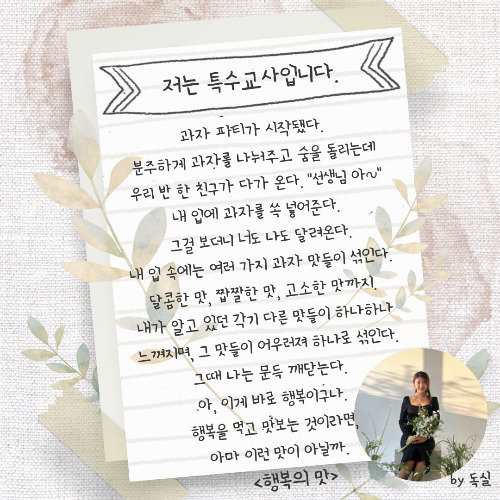 저는 특수교사입니다.
과자 파티가 시작됐다.
분주하게 과자를 나눠주고 숨을 돌리는데
우리 반 한 친구가 다가 온다. "선생님 아~"
내 입에 과자를 쏙 넣어준다.
그걸 보더니 너도 나도 달려온다.
내 입 속에는 여러 가지 과자 맛들이 섞인다.
달콤한 맛, 짭짤한 맛, 고소한 맛까지.
내가 알고 있던 각기 다른 맛들이 하나하나
느껴지며, 그 맛들이 어우러져 하나로 섞인다.
그때 나는 문득 깨닫는다.
아, 이게 바로 행복이구나.
행복을 먹고 맛보는 것이라면,
아마 이런 맛이 아닐까.
<행복의 맛>
by 독실